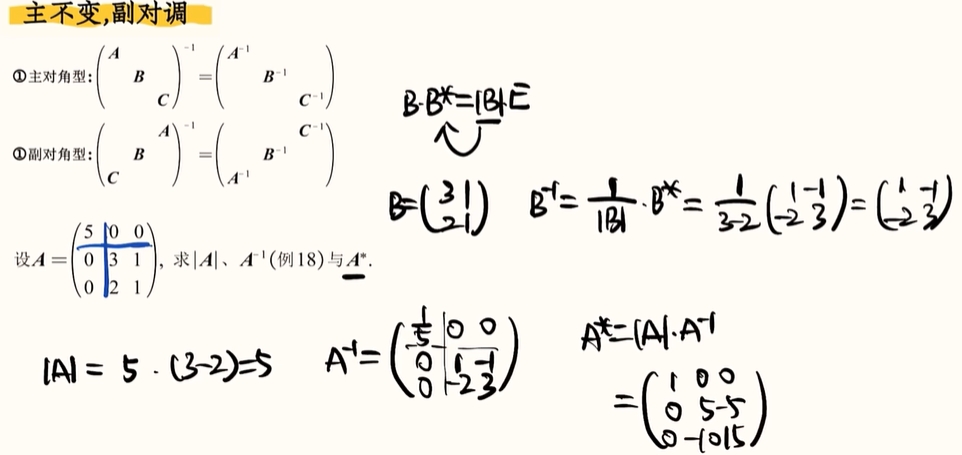 主不变,副对调
①主对角型: (A B C)⁻¹ = (A⁻¹ B⁻¹ C⁻¹)
①副对角型: (A B C)⁻¹ = (C⁻¹ B⁻¹ A⁻¹)
B·B*=|B|E
B=(3 1
2 1) B⁻¹= 1/|B| ·B*= 1/3-2 (1 -1
-2 3)=(1 -1
-2 3)
设A=(5 0 0
0 3 1
0 2 1), 求|A|、A⁻¹(例18)与A*.
|A|= 5 ·(3-2)=5
A⁻¹=(1/5 0 0
0 1 -1
0 -2 3)
A*=|A|·A⁻¹
=(1 0 0
0 5 -5
0 -10 15)